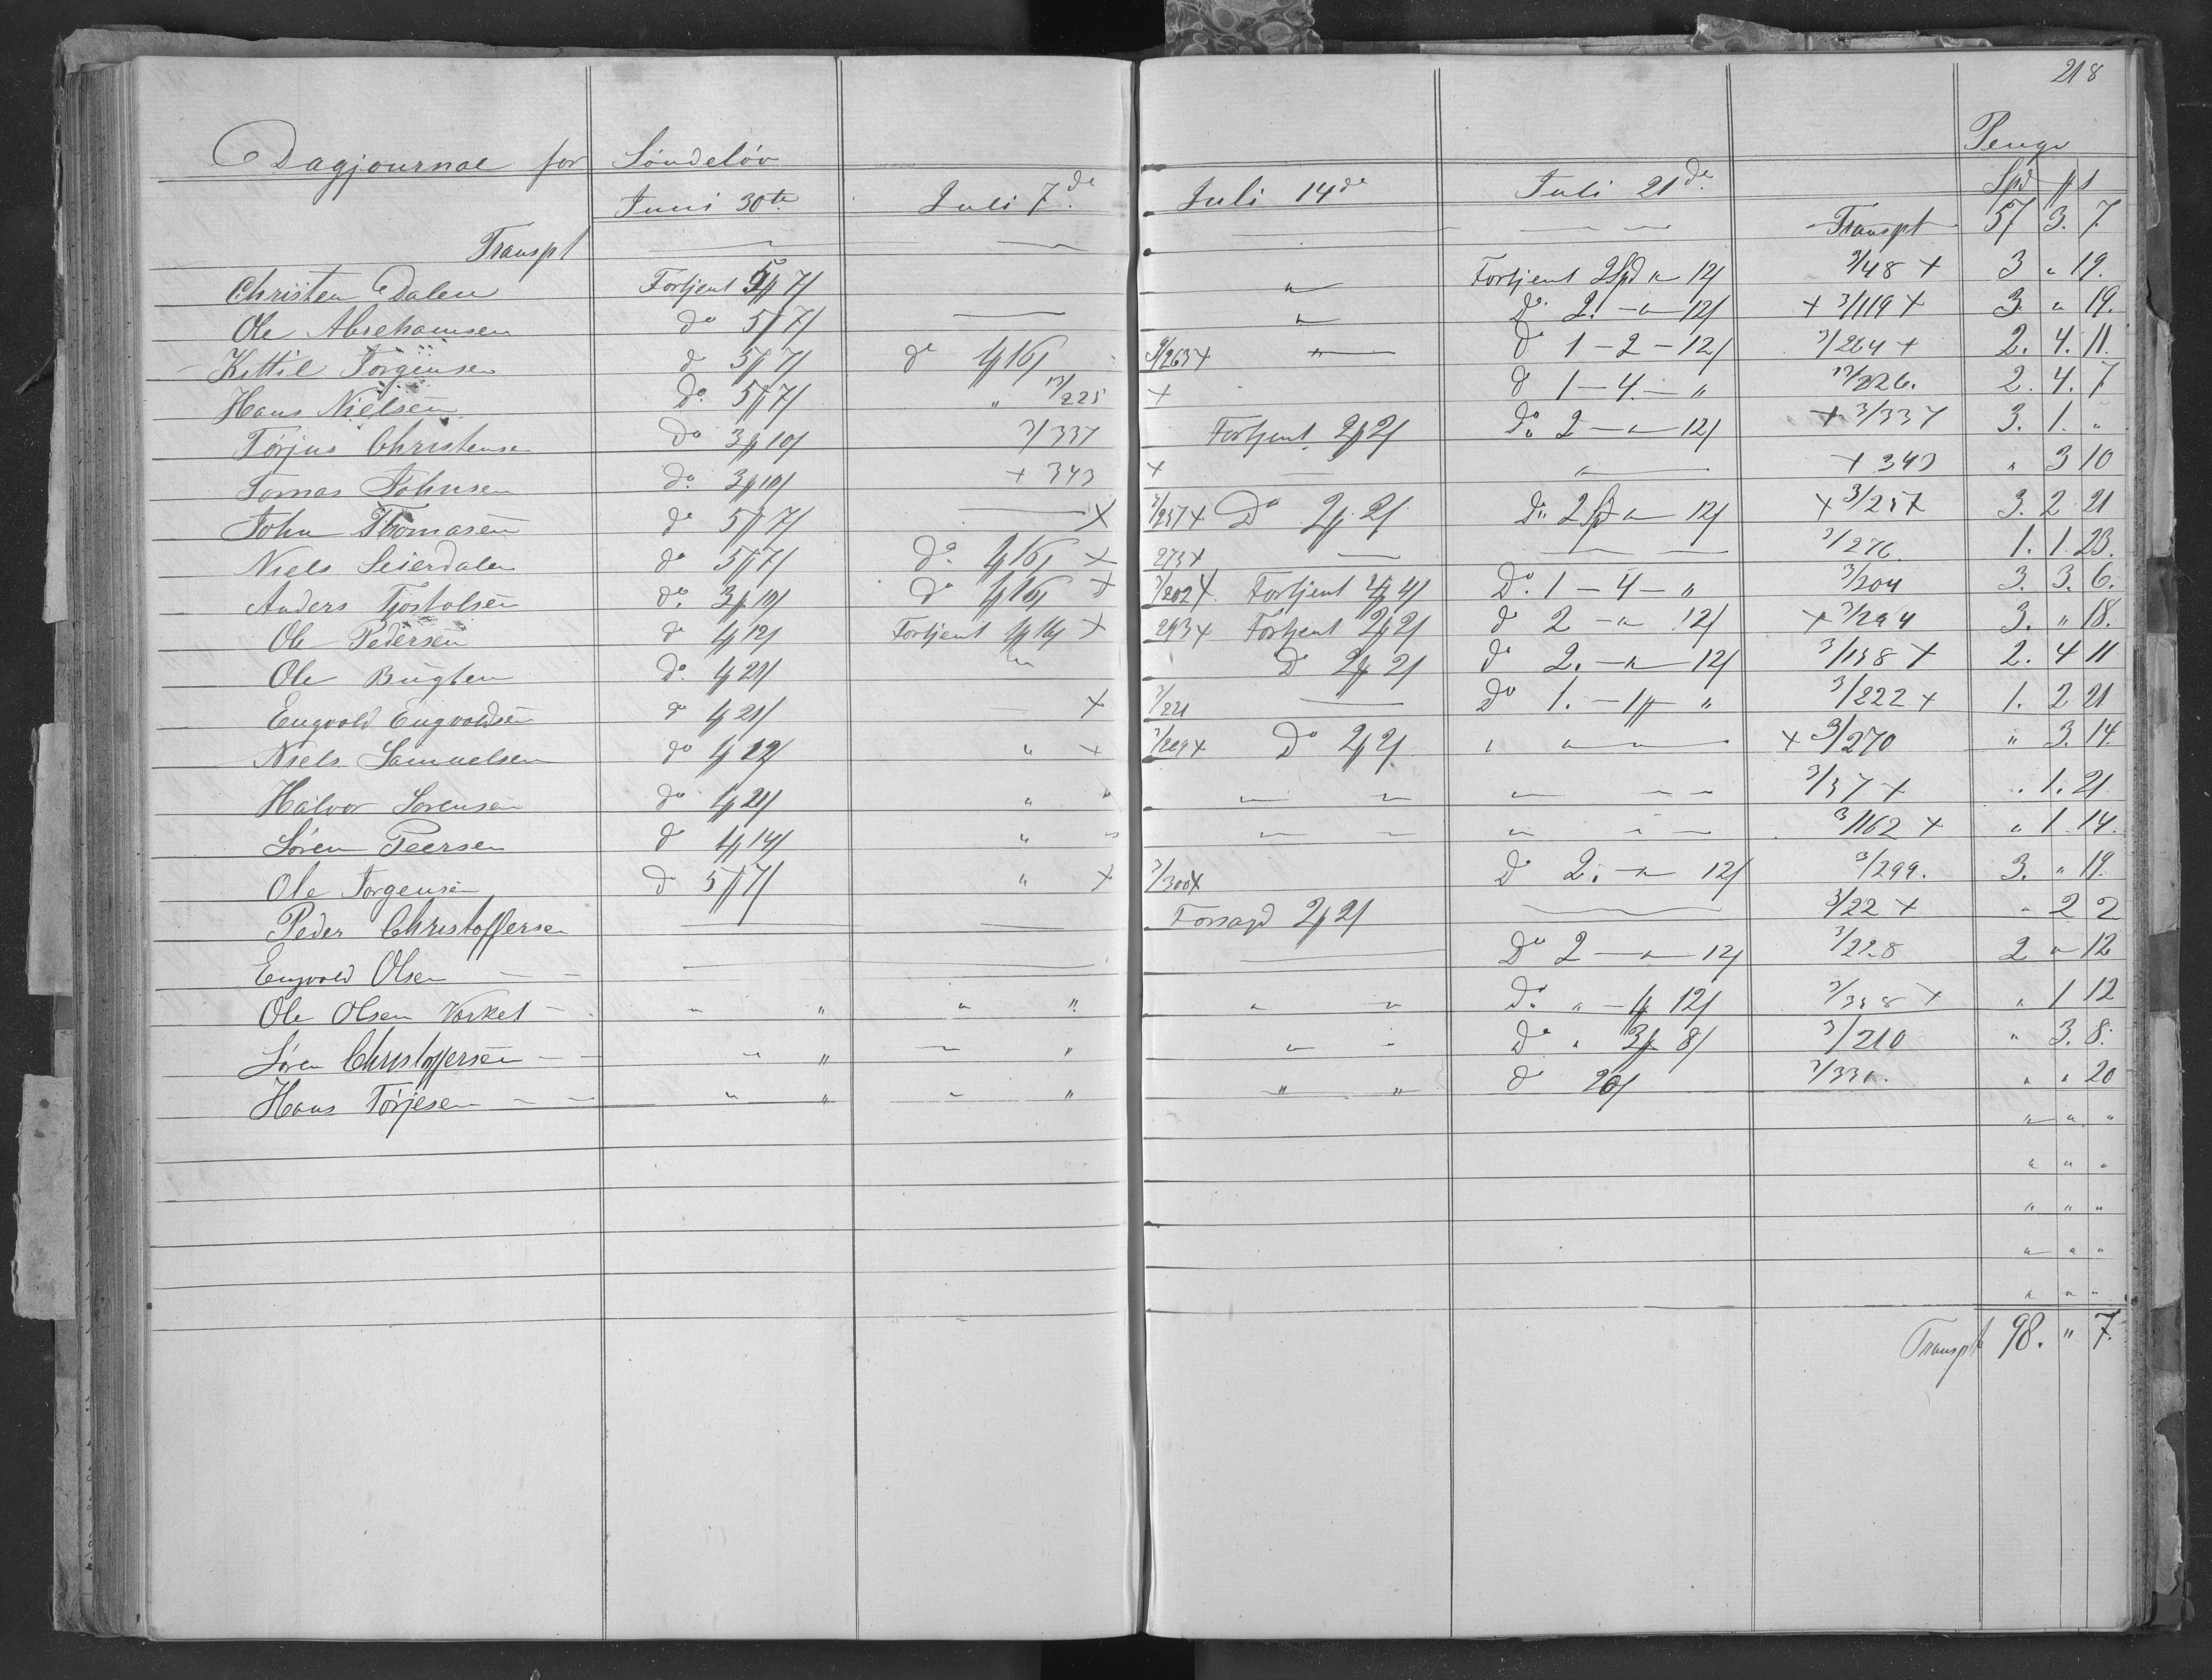 218
Dagjournal for Søndeløv Penge
Juni 30te Juli 7de Juli 14de Juli 21de Spd ß
Transpt — — — — Transpt 57 3. 7.
Christen Dalen Fortjent 5 7 " Fortjent 2 Spd " 12 3/48 + 3 " 19.
Ole Abrehamsen do 5 7 — " Do 2. - " - 12 + 3/119 + 3. " 19.
Kittil Jørgensen do 5 7 do 4 16 3/263 + " — d 1 - 2 - 12 3/264 + 2. 4. 11.
Hans Nielsen Do. 5 7 " 13/225 + d 1 - 4 - " 13/226. 2. 4. 7
Tørjus Christensen Do 3 10 3/337 Fortjent 2 2 Do 2 - " - 12 + 3/337 3. 1. "
Tomas Johnsen do. 3 10 + 343 + — " — + 343 " 3 10
John Thomasen do 5 7 — + 3/257 + Do 2 2 Do 2 Spd " 12 + 3/257 3. 2 21
Niels Seierdalen do 5 7 Do. 4 16 + 275 + — — 3/276 1. 1. 23.
Anders Tjostolsen do. 3 10 Do 4 16 + 3/202 + Fortjent 4 4 Do. 1 - 4 - " 3/204 3. 3. 6.
Ole Pedersen do 4 12 Fortjent 4 16 + 293 + Fortjent 2 2 d 2 - " 12 + 3/294 3. " 18.
Ole Bugten do. 4 21 " Do 2 2 do 2. - " - 12 3/138 + 2. 4 11
Engvold Engvoldsen do 4 21 — + 3/221 — Do 1. - 1 " 3/222 + 1. 2 21
Niels Samuelsen do 4 12 " + 3/269 + Do 2 2 " " " — + 3/270 " 3. 14.
Halvor Sørensen do 4 21 " " " " " — — 3/37 + . 1. 21.
Søren Peersen d 4 14 " " " " " — — 3/162 + " 1 14.
Ole Jørgensen do 5 7 " + 3/300 + Do 2. - " 12 3/299. 3. " 19.
Peder Christoffersen — — Forsagd 2 2 — 3/22 + " 2 2
Engvold Olsen — — — Do 2 - " - 12 3/228 2 " 12
Ole Olsen Varket " " " " " " Do. " - 4 12 3/338 + " 1 12
Søren Christoffersen — — " " — " " - Do " 3 8 3/210 " 3. 8.
Hans Tørjesen — — " " " " " " d 20 3/331. " " 20
" " "
" " "
" " "
" " "
" " "
Transpt 98. " 7.